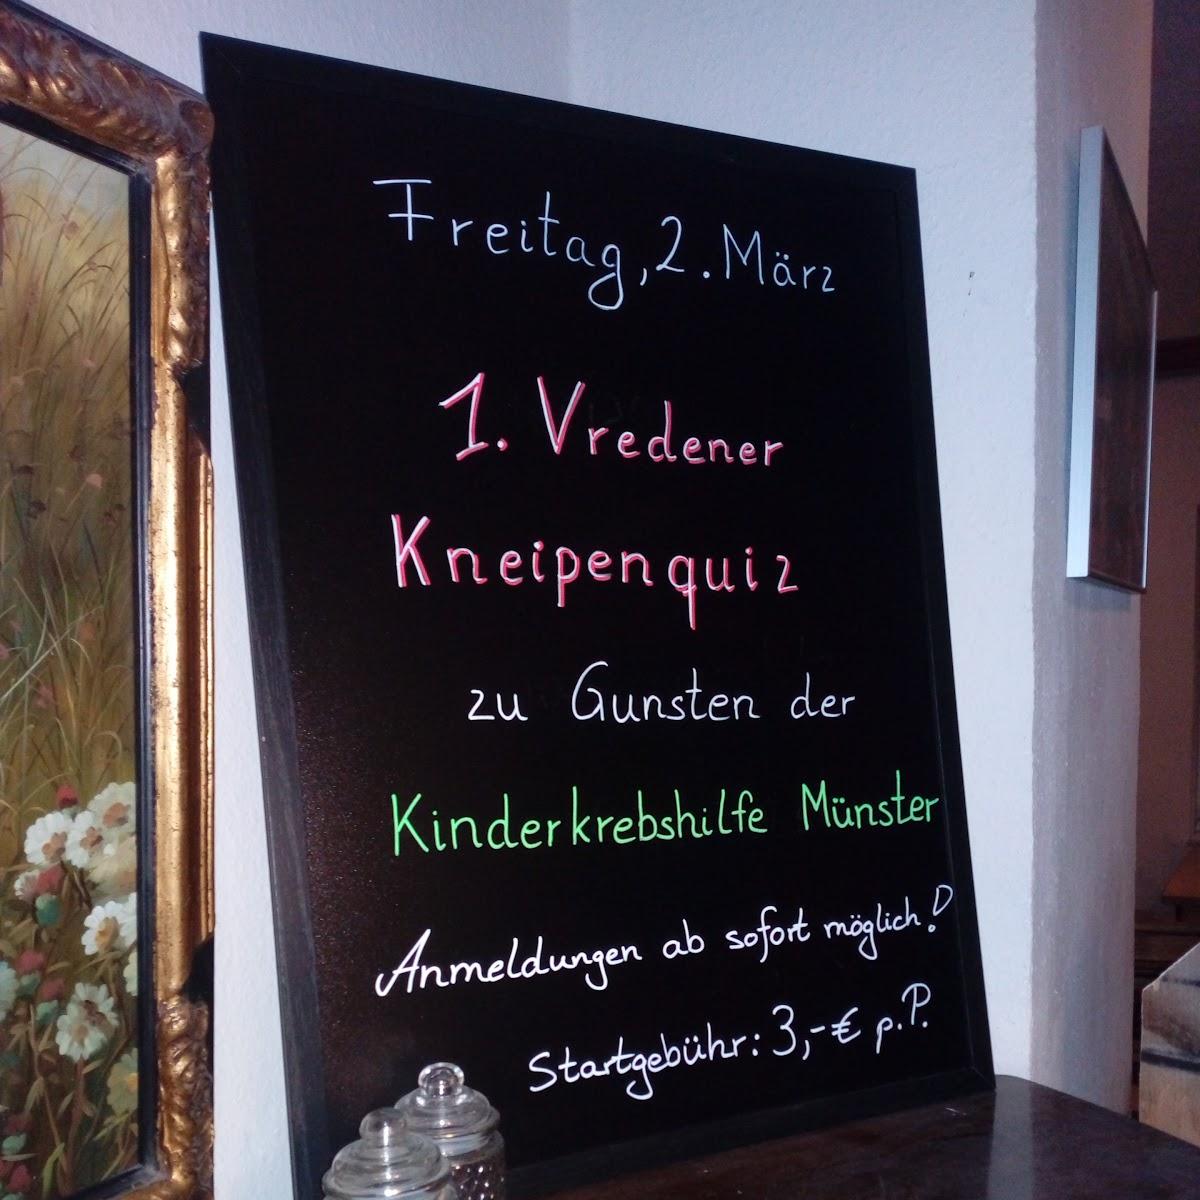 Freitag, 2. März
1. Vredener
Kneipenquiz
zu Gunsten der
Kinderkrebshilfe Münster
Anmeldungen ab sofort möglich!
Startgebühr: 3,-€ p.P.